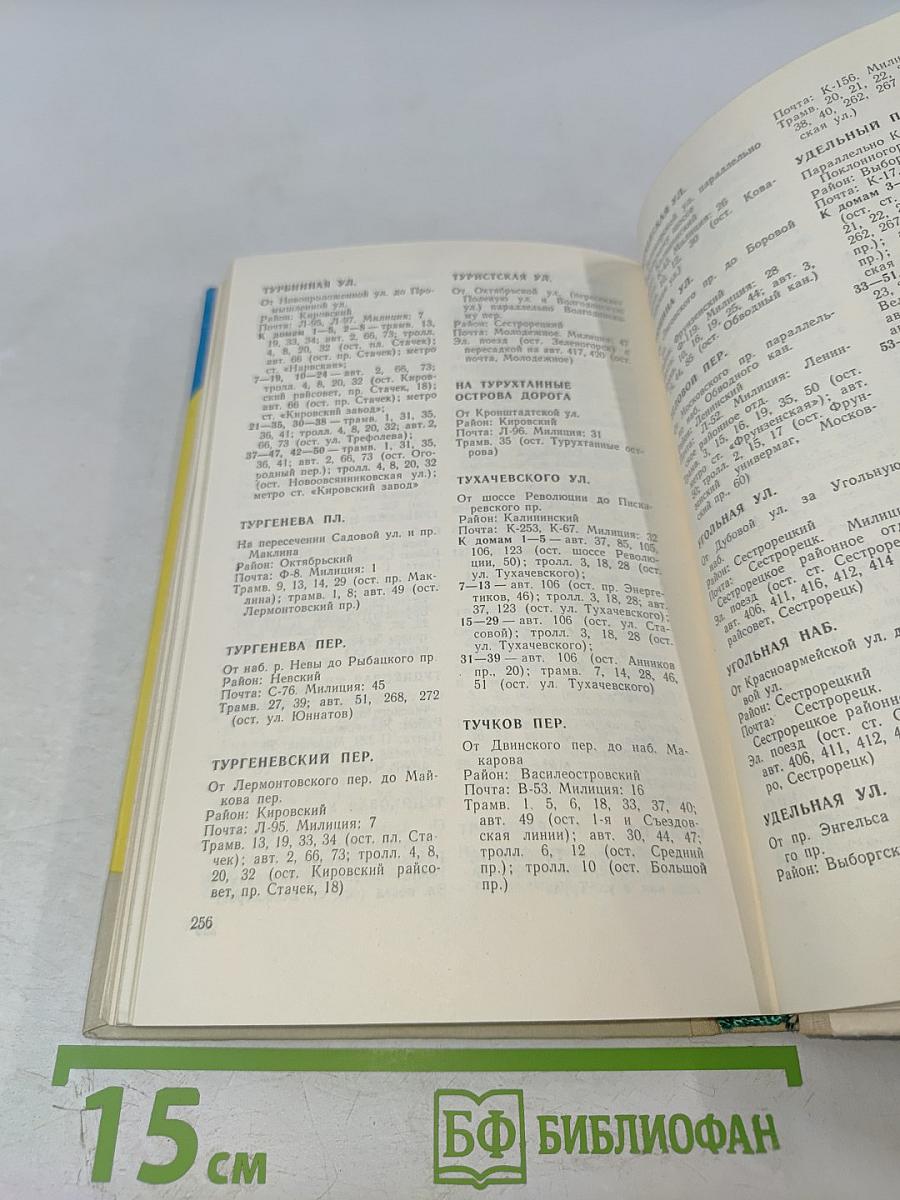 ТУРБИННАЯ УЛ.
От Новопроложенной ул. до Про-
мышленной ул.
Район: Кировский
Почта: Л-95, Л-97. Милиция: 7
К домам 1—5, 2—8 — трамв. 13,
19, 33, 34; авт. 2, 66, 73; тролл.
4, 8, 20, 32 (ост. пл. Стачек);
авт. 66 (ост. пр. Стачек); метро
ст. «Нарвская»;
7—19, 10—24 — авт. 2, 66, 73;
тролл. 4, 8, 20, 32 (ост. Киров-
ский райсовет, пр. Стачек, 18);
авт. 66 (ост. пр. Стачек); метро
ст. «Кировский завод»;
21—35, 30—38 — трамв. 1, 31, 35,
36, 41; тролл. 4, 8, 20, 32; авт. 2,
66, 73 (ост. ул. Трефолева);
37—47, 42—50 — трамв. 1, 31, 35,
36, 41; авт. 2, 66, 73 (ост. Ого-
родный пер.); тролл. 4, 8, 20, 32
(ост. Новоовсянниковская ул.);
метро ст. «Кировский завод»
ТУРГЕНЕВА ПЛ.
На пересечении Садовой ул. и пр.
Маклина
Район: Октябрьский
Почта: Ф-8. Милиция: 1
Трамв. 9, 13, 14, 29 (ост. пр. Мак-
лина); трамв. 1, 8; авт. 49 (ост.
Лермонтовский пр.)
ТУРГЕНЕВА ПЕР.
От наб. р. Невы до Рыбацкого пр.
Район: Невский
Почта: С-76. Милиция: 45
Трамв. 27, 39; авт. 51, 268, 272
(ост. ул. Юннатов)
ТУРГЕНЕВСКИЙ ПЕР.
От Лермонтовского пер. до Май-
кова пер.
Район: Кировский
Почта: Л-95. Милиция: 7
Трамв. 13, 19, 33, 34 (ост. пл. Ста-
чек); авт. 2, 66, 73; тролл. 4, 8,
20, 32 (ост. Кировский райсо-
вет, пр. Стачек, 18)
256
ТУРИСТСКАЯ УЛ.
От Октябрьской ул. (пересекает
Полевую ул. и Вологодскую
ул.) параллельно
му пер.
Район: Сестрорецкий
Почта: Молодежное. Милиция: 47
Эл. поезд (ост. Зеленогорск) с
пересадкой на авт. 417, 420 (ост.
почта, Молодежное)
НА ТУРУХТАННЫЕ
ОСТРОВА ДОРОГА
От Кронштадтской ул.
Район: Кировский
Почта: Л-96. Милиция: 31
Трамв. 35 (ост. Турухтанные ост-
рова)
ТУХАЧЕВСКОГО УЛ.
От шоссе Революции до Писка-
ревского пр.
Район: Калининский
Почта: К-253, К-67. Милиция: 32
К домам 1—5 — авт. 37, 85, 105,
106, 123 (ост. шоссе Револю-
ции, 50); тролл. 3, 18, 28 (ост.
ул. Тухачевского);
7—13 — авт. 106 (ост. пр. Энерге-
тиков, 46); тролл. 3, 18, 28; авт.
37, 123 (ост. ул. Тухачевского);
15—29 — авт. 106 (ост. ул. Ста-
совой); тролл. 3, 18, 28 (ост.
ул. Тухачевского);
31—39 — авт. 106 (ост. Анников
пр., 20); трамв. 7, 14, 28, 46,
51 (ост. ул. Тухачевского)
ТУЧКОВ ПЕР.
От Двинского пер. до наб. Ма-
карова
Район: Василеостровский
Почта: В-53. Милиция: 16
Трамв. 1, 5, 6, 18, 33, 37, 40;
авт. 49 (ост. 1-я и Съездов-
ская линии); авт. 30, 44, 47;
тролл. 6, 12 (ост. Средний
пр.); тролл. 10 (ост. Большой
пр.)
УГОЛЬНАЯ УЛ.
От Дубовой ул. за Угольную
наб.
Район: Сестрорецкий
Почта: Сестрорецк. Милиция:
Сестрорецкое районное отд.
Эл. поезд (ост. ст. Сестрорецк)
авт. 406, 411, 416, 412, 414
райсовет, Сестрорецк)
УГОЛЬНАЯ НАБ.
От Красноармейской ул. д
вой ул.
Район: Сестрорецкий
Почта: Сестрорецк.
Сестрорецкое районно
Эл. поезд (ост. ст. С
авт. 406, 411, 412, 4
ро, Сестрорецк)
УДЕЛЬНАЯ УЛ.
От пр. Энгельса
го пр.
Район: Выборгск
Почта: К-156. Мили
Трамв. 20, 21, 22,
38, 40, 262, 267
ская ул.)
УДЕЛЬНЫЙ П
Параллельно К
Поклонногор
Район: Выбор
Почта: К-17.
К домам 3—
(ост. ст.
21, 22,
262, 267
пр.);
ская
33—51,
23, 4
Вел
ав
ав
53—
15 см
БФ БИБЛИОФАН